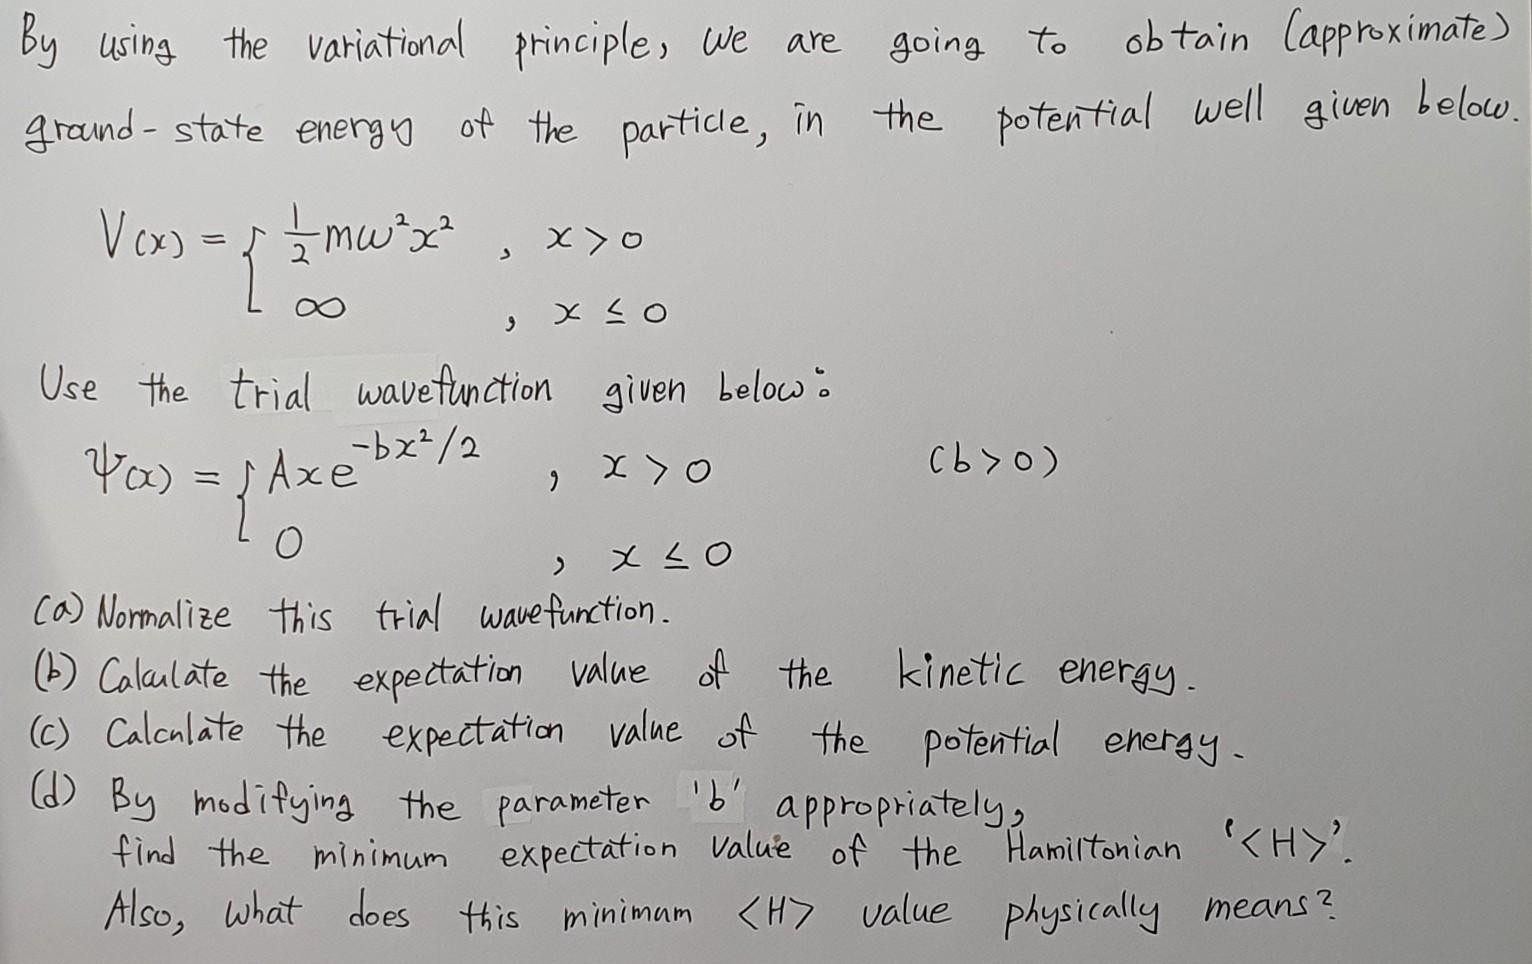 By using the variational principle, we are going to obtain (approximate)
ground-state energy of the particle, in the potential well given below.
V(x) = { 1/2 mω²x² , x > 0
∞ , x ≤ 0
Use the trial wavefunction given below:
Ψ(x) = { Axe^(-bx²/2) , x > 0 (b > 0)
0 , x ≤ 0
(a) Normalize this trial wavefunction.
(b) Calculate the expectation value of the kinetic energy.
(c) Calculate the expectation value of the potential energy.
(d) By modifying the parameter 'b' appropriately,
find the minimum expectation value of the Hamiltonian '<H>'.
Also, what does this minimum <H> value physically means?